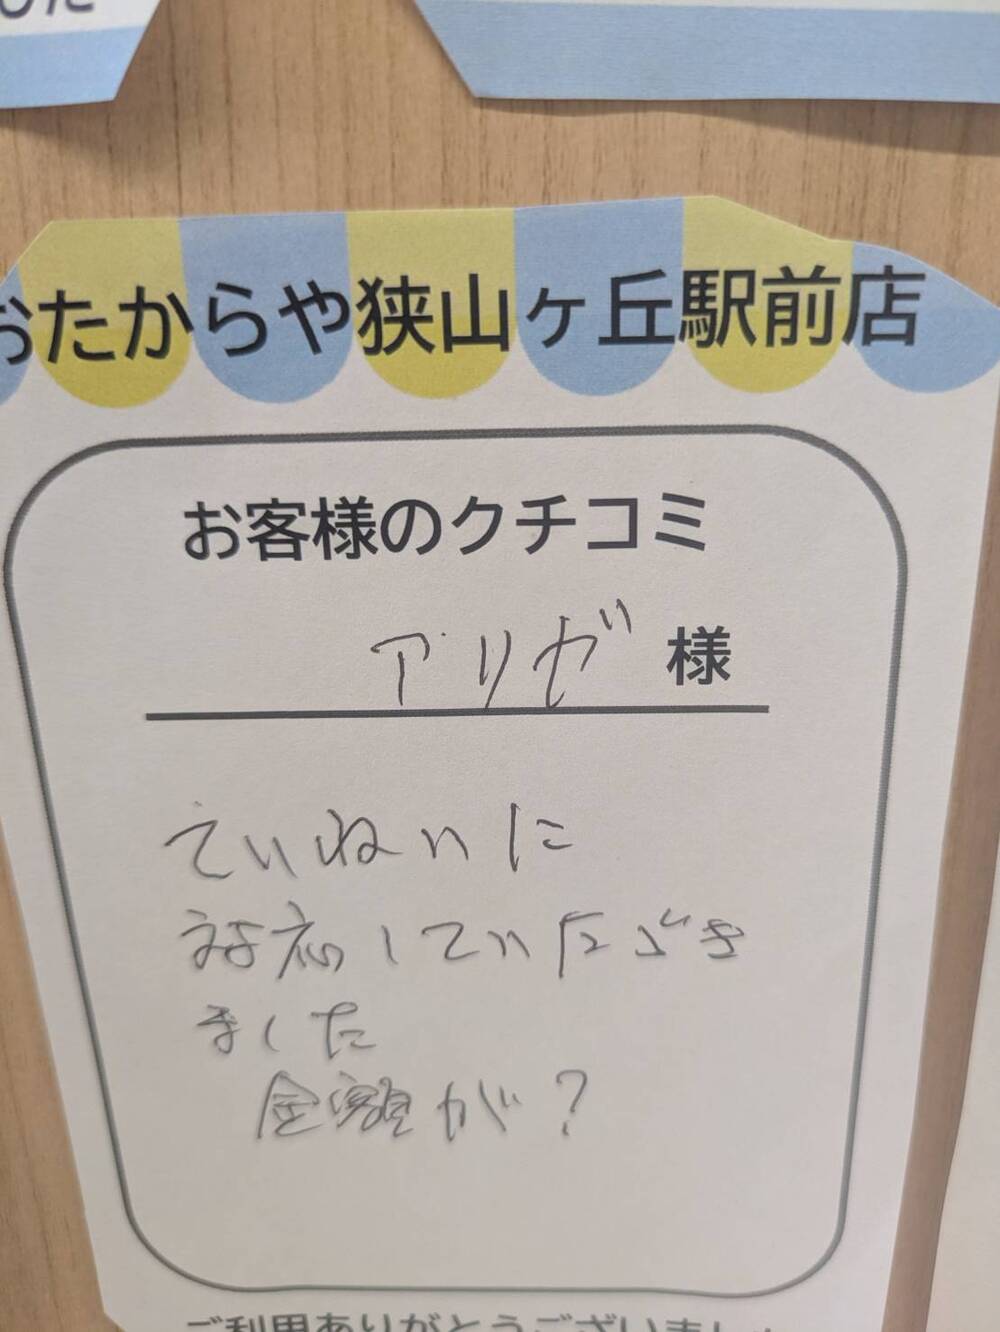 した
おたからや狭山ヶ丘駅前店
お客様のクチコミ
アリガ 様
ていねいに
対応していただき
ました
金額が?
ご利用ありがとうございました